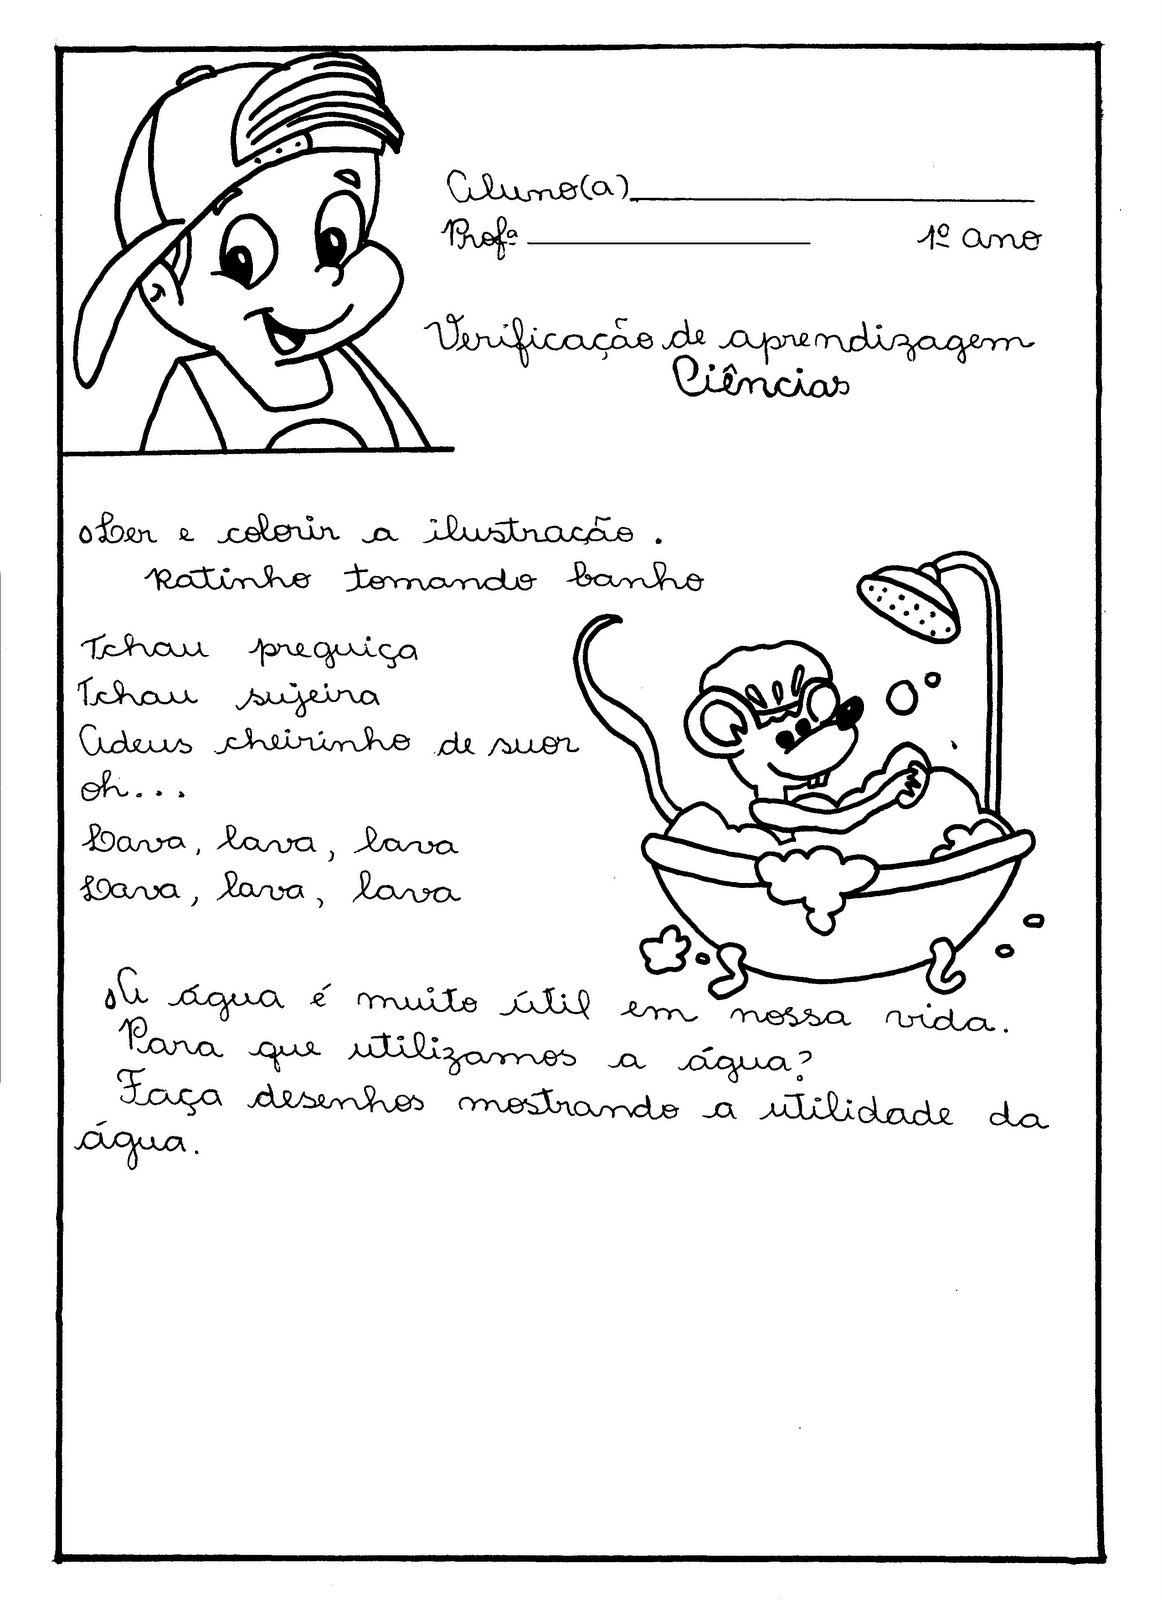 Aluno(a)
Profª 1º ano
Verificação de aprendizagem
Ciências
Ler e colorir a ilustração.
Ratinho tomando banho
Tchau preguiça
Tchau sujeira
Adeus cheirinho de suor
oh...
Lava, lava, lava
Lava, lava, lava
A água é muito útil em nossa vida.
Para que utilizamos a água?
Faça desenhos mostrando a utilidade da
água.